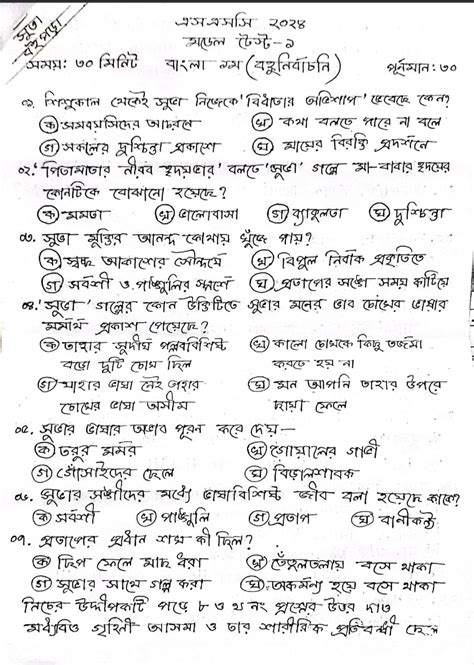 সুভা
বইপড়া
এসএসসি ২০২৪
মডেল টেস্ট-১
সময়: ৩০ মিনিট বাংলা ১ম (বহুনির্বাচনি) পূর্ণমান: ৩০
০১. শিশুকাল থেকেই সুভা নিজেকে 'বিধাতার অভিশাপ' ভেবেছে কেন?
ক সমবয়সিদের আচরনে খ কথা বলতে পারে না বলে
গ সকলের দুশ্চিন্তা প্রকাশে ঘ মায়ের বিরক্তি প্রদর্শনে
০২. 'পিতামাতার নীরব হৃদয়ভার' বলতে 'সুভা' গল্পে মা-বাবার হৃদয়ের
কোনটিকে বোঝানো হয়েছে?
ক মমতা খ ভালোবাসা গ ব্যাকুলতা ঘ দুশ্চিন্তা
০৩. সুভা মুক্তির আনন্দ কোথায় খুঁজে পায়?
ক স্বচ্ছ আকাশের সৌন্দর্যে খ বিপুল নির্বাক প্রকৃতিতে
গ সর্বশী ও পাঙ্গুলির স্পর্শে ঘ প্রতাপের সঙ্গে সময় কাটিয়ে
০৪. 'সুভা' গল্পের কোন উক্তিটিতে সুভার মনের ভাব চোখের ভাষার
মর্মার্থ প্রকাশ পেয়েছে?
ক তাহার সুদীর্ঘ পল্লববিশিষ্ট খ কালো চোখকে কিছু তর্জমা
বড়ো দুটি চোখ ছিল করতে হয় না
গ যাহার ভাষা নেই তাহার ঘ মন আপনি তাহার উপরে
চোখের ভাষা অসীম ছায়া ফেলে
০৫. সুভার ভাষার অভাব পূরন করে দেয়—
ক তরুর মর্মর খ গোয়ালের গাভী
গ গোঁসাইদের ছেলে ঘ বিড়ালশাবক
০৬. সুভার সঙ্গীদের মধ্যে ভাষাবিশিষ্ট জীব বলা হয়েছে কাকে?
ক সর্বশী খ পাঙ্গুলি গ প্রতাপ ঘ বানীকন্ঠ
০৭. প্রতাপের প্রধান শখ কী ছিল?
ক ছিপ ফেলে মাছ ধরা খ তেঁতুলতলায় বসে থাকা
গ সুভার সাথে গল্প করা ঘ অকর্মণ্য হয়ে বসে থাকা
নিচের উদ্দীপকটি পড়ে ৮ ও ৯ নং প্রশ্নের উত্তর দাও
মধ্যবিত্ত গৃহিনী আসমা ও তার শারীরিক প্রতিবন্ধী ছেলে